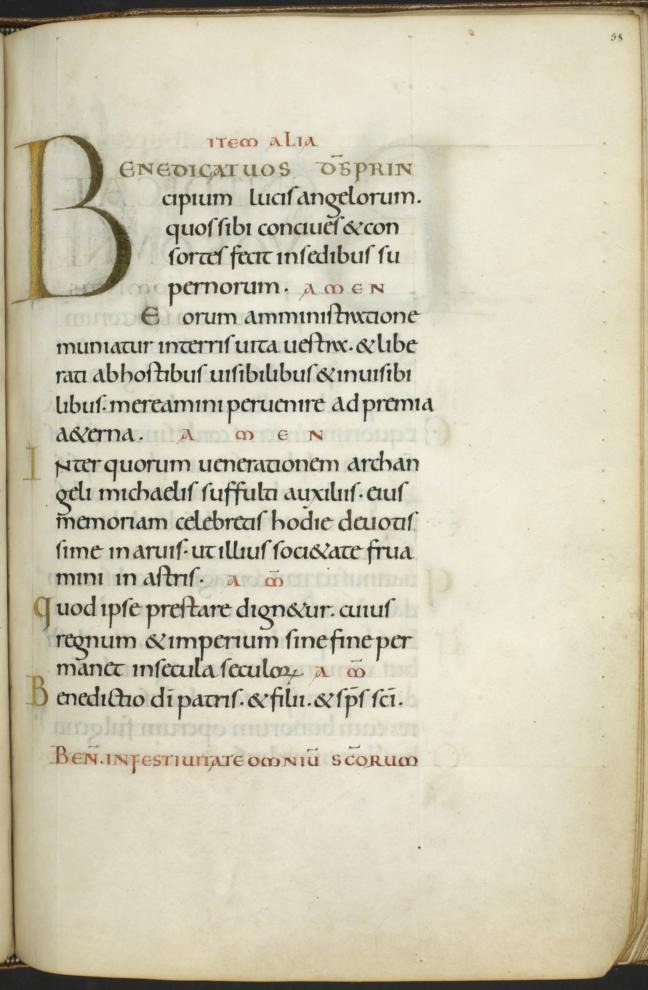 58
ITEM ALIA
BENEDICAT UOS DS̄ PRIN
cipium lucis angelorum.
quos sibi conciues & con
sortes fecit in sedibus su
pernorum. AMEN
Eorum amministratione
muniatur interris uita uestra. & libe
rati ab hostibus uisibilibus & inuisibi
libus. mereamini peruenire ad premia
a&erna. AMEN
Inter quorum uenerationem archan
geli michaelis suffulti auxiliis. eius
memoriam celebretis hodie deuotis
sime in aruis. ut illius soci&ate frua
mini in astris. A M̄
Quod ipse prestare dign&ur. cuius
regnum & imperium sine fine per
manet insecula seculoꝝ. A M̄
Benedictio dī patris. & filii. & sp̄s sc̄i.
BEN̄. IN FESTIUITATE OMNIŪ SC̄ORUM